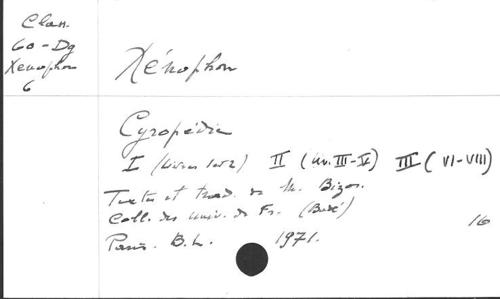 Clas.
60 - Dg
Xenophon
6
Xénophon
Cyropédie
I (Livres 1 et 2) II (liv. III-V) III (VI-VIII)
Textes et trad. de M. Bizos.
Coll. des Univ. de Fr. (Budé)
16
Paris. B.L. 1971.